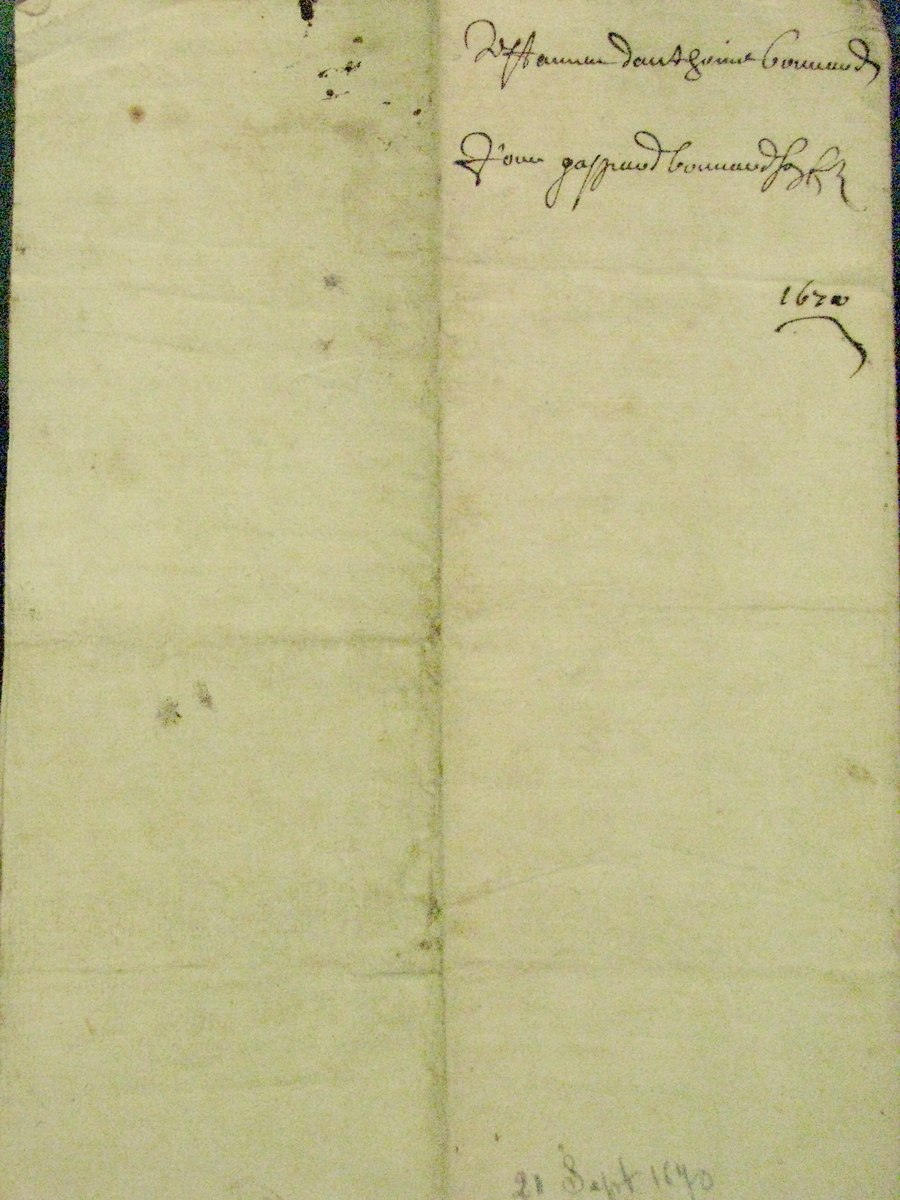 Testamen danthoine bonnaud
Pour gaspard bonnaud
1670
21 Sept 1670